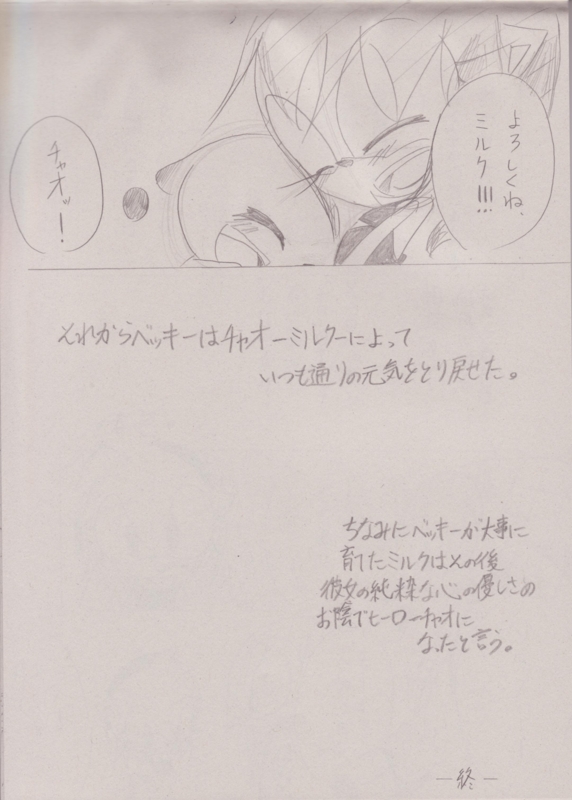 よろしくね、
ミルク!!!
チャオッ!
それからベッキーはチャオーミルクーによって
いつも通りの元気をとり戻せた。
ちなみにベッキーが大事に
育てたミルクはその後
彼女の純粋な心の優しさの
お陰でヒーローチャオに
なったと言う。
―終―